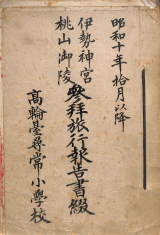 昭和十年拾月以降
伊勢神宮
桃山御陵
参拝旅行報告書綴
高輪台尋常小学校